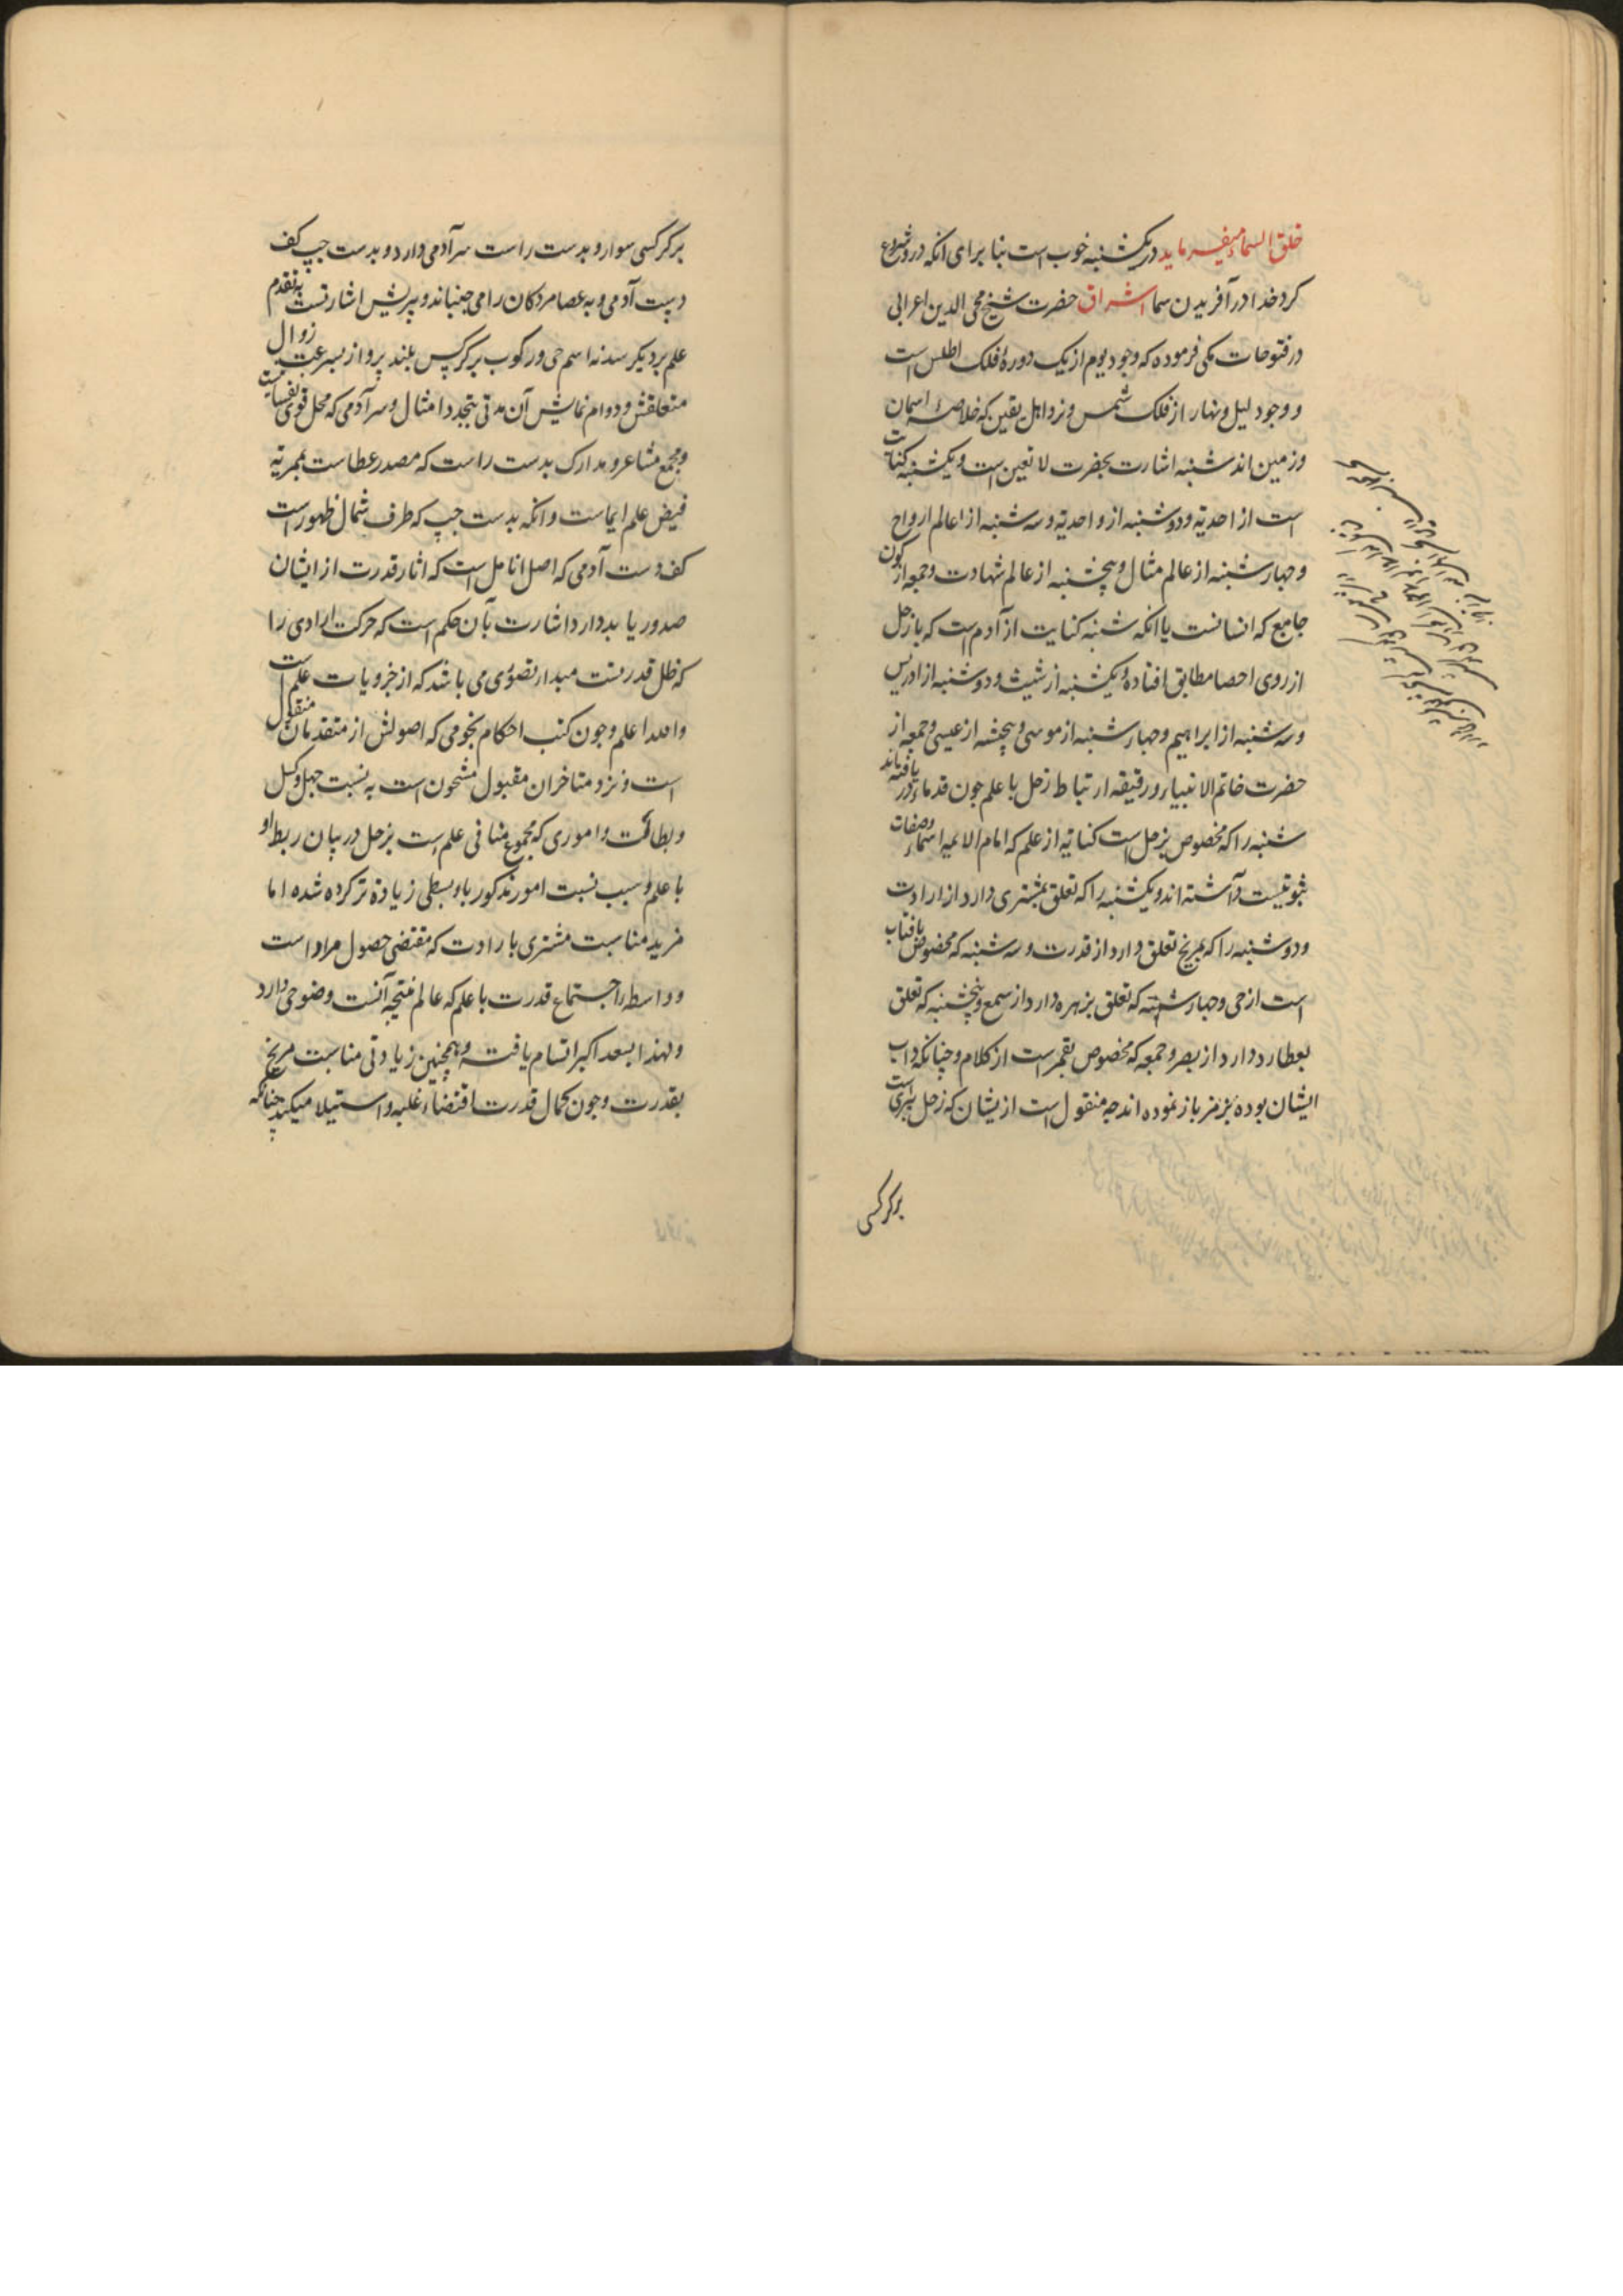 خلق السماء میفرماید در یکشنبه خوب است بنا برای انکه درو شروع
کرد خدا در آفریدن سما اشراق حضرت شیخ محی الدین اعرابی
در فتوحات مکی فرموده که وجود یوم از یک دورهٔ فلک اطلس است
و وجود لیل و نهار از فلک شمس و نزد اهل یقین که خلاصهٔ اسمان
و زمین اند شنبه اشارت بحضرت لا تعین است و یکشنبه کنایت
است از احدیة و دوشنبه از واحدیة و سه شنبه از عالم ارواح
و جهارشنبه از عالم مثال و پنجشنبه از عالم شهادت و جمعه از کون
جامع که انسانست یا انکه شنبه کنایت از آدم است که با زحل
از روی احصا مطابق افتاده و یکشنبه از شیث و دوشنبه از ادریس
و سه شنبه از ابراهیم و جهارشنبه از موسی و پنجشنبه از عیسی و جمعه از
حضرت خاتم الانبیا و رقیقه ارتباط زحل با علم جون قدما دریافته اند
شنبه را که مخصوص بزحل است کنایه از علم که امام الائمه اسماء و صفات
ثبوتیست داشته اند و یکشنبه را که تعلق بمشتری دارد از ارادت
و دوشنبه را که بمریخ تعلق دارد از قدرت و سه شنبه که مخصوص بافتاب
است از حی و جهارشنبه که تعلق بزهره دارد از سمع و پنجشنبه که تعلق
بعطارد دارد از بصر و جمعه که مخصوص بقمر است از کلام و چنانکه داب
ایشان بوده برمز باز نموده اند جه منقول است ازیشان که زحل پیری است
برکرکسی
برکرکسی سوار و بدست راست سر آدمی دارد و بدست جپ کف
دست آدمی و به عصا مردکان را می جنباند و پیریش اشارتست به تقدم
علم بر دیکر سدنه اسم حی و رکوب برکرکس بلند پرواز بسرعت زوال
متعلقش و دوام نمایش آن مدتی بتجدد امثال و سر آدمی که محل قوی نفسانیست
و مجمع مشاعر و مدارک بدست راست که مصدر عطاست
فیض علم ایماست و انکه بدست جپ که طرف شمال ظهور است
کف دست آدمی که اصل انامل است که اثار قدرت از ایشان
صدور یابد دارد اشارت بآن حکم است که حرکت ارادی را
که ظل قدرتست مبدا تصوری می باشد که از جزویات علم است
والله اعلم و جون کتب احکام نجومی که اصولش از متقدمان منقول
است و نزد متاخران مقبول مشحون است به نسبت جهل و کسل
و بطائت و اموری که مجموع منافی علم است بزحل در بیان ربط او
با علم و سبب نسبت امور مذکور باو بسطی زیاده تر کرده شده اما
مزید مناسبت مشتری با رادت که مقتضی حصول مراد است
و واسطه اجتماع قدرت با علم که عالم نتیجه آنست وضوحی دارد
و لهذا بسعد اکبر اتسام یافته و همچنین زیادتی مناسبت مریخ
بقدرت و جون کمال قدرت اقتضاء غلبه و استیلا میکند چنانکه